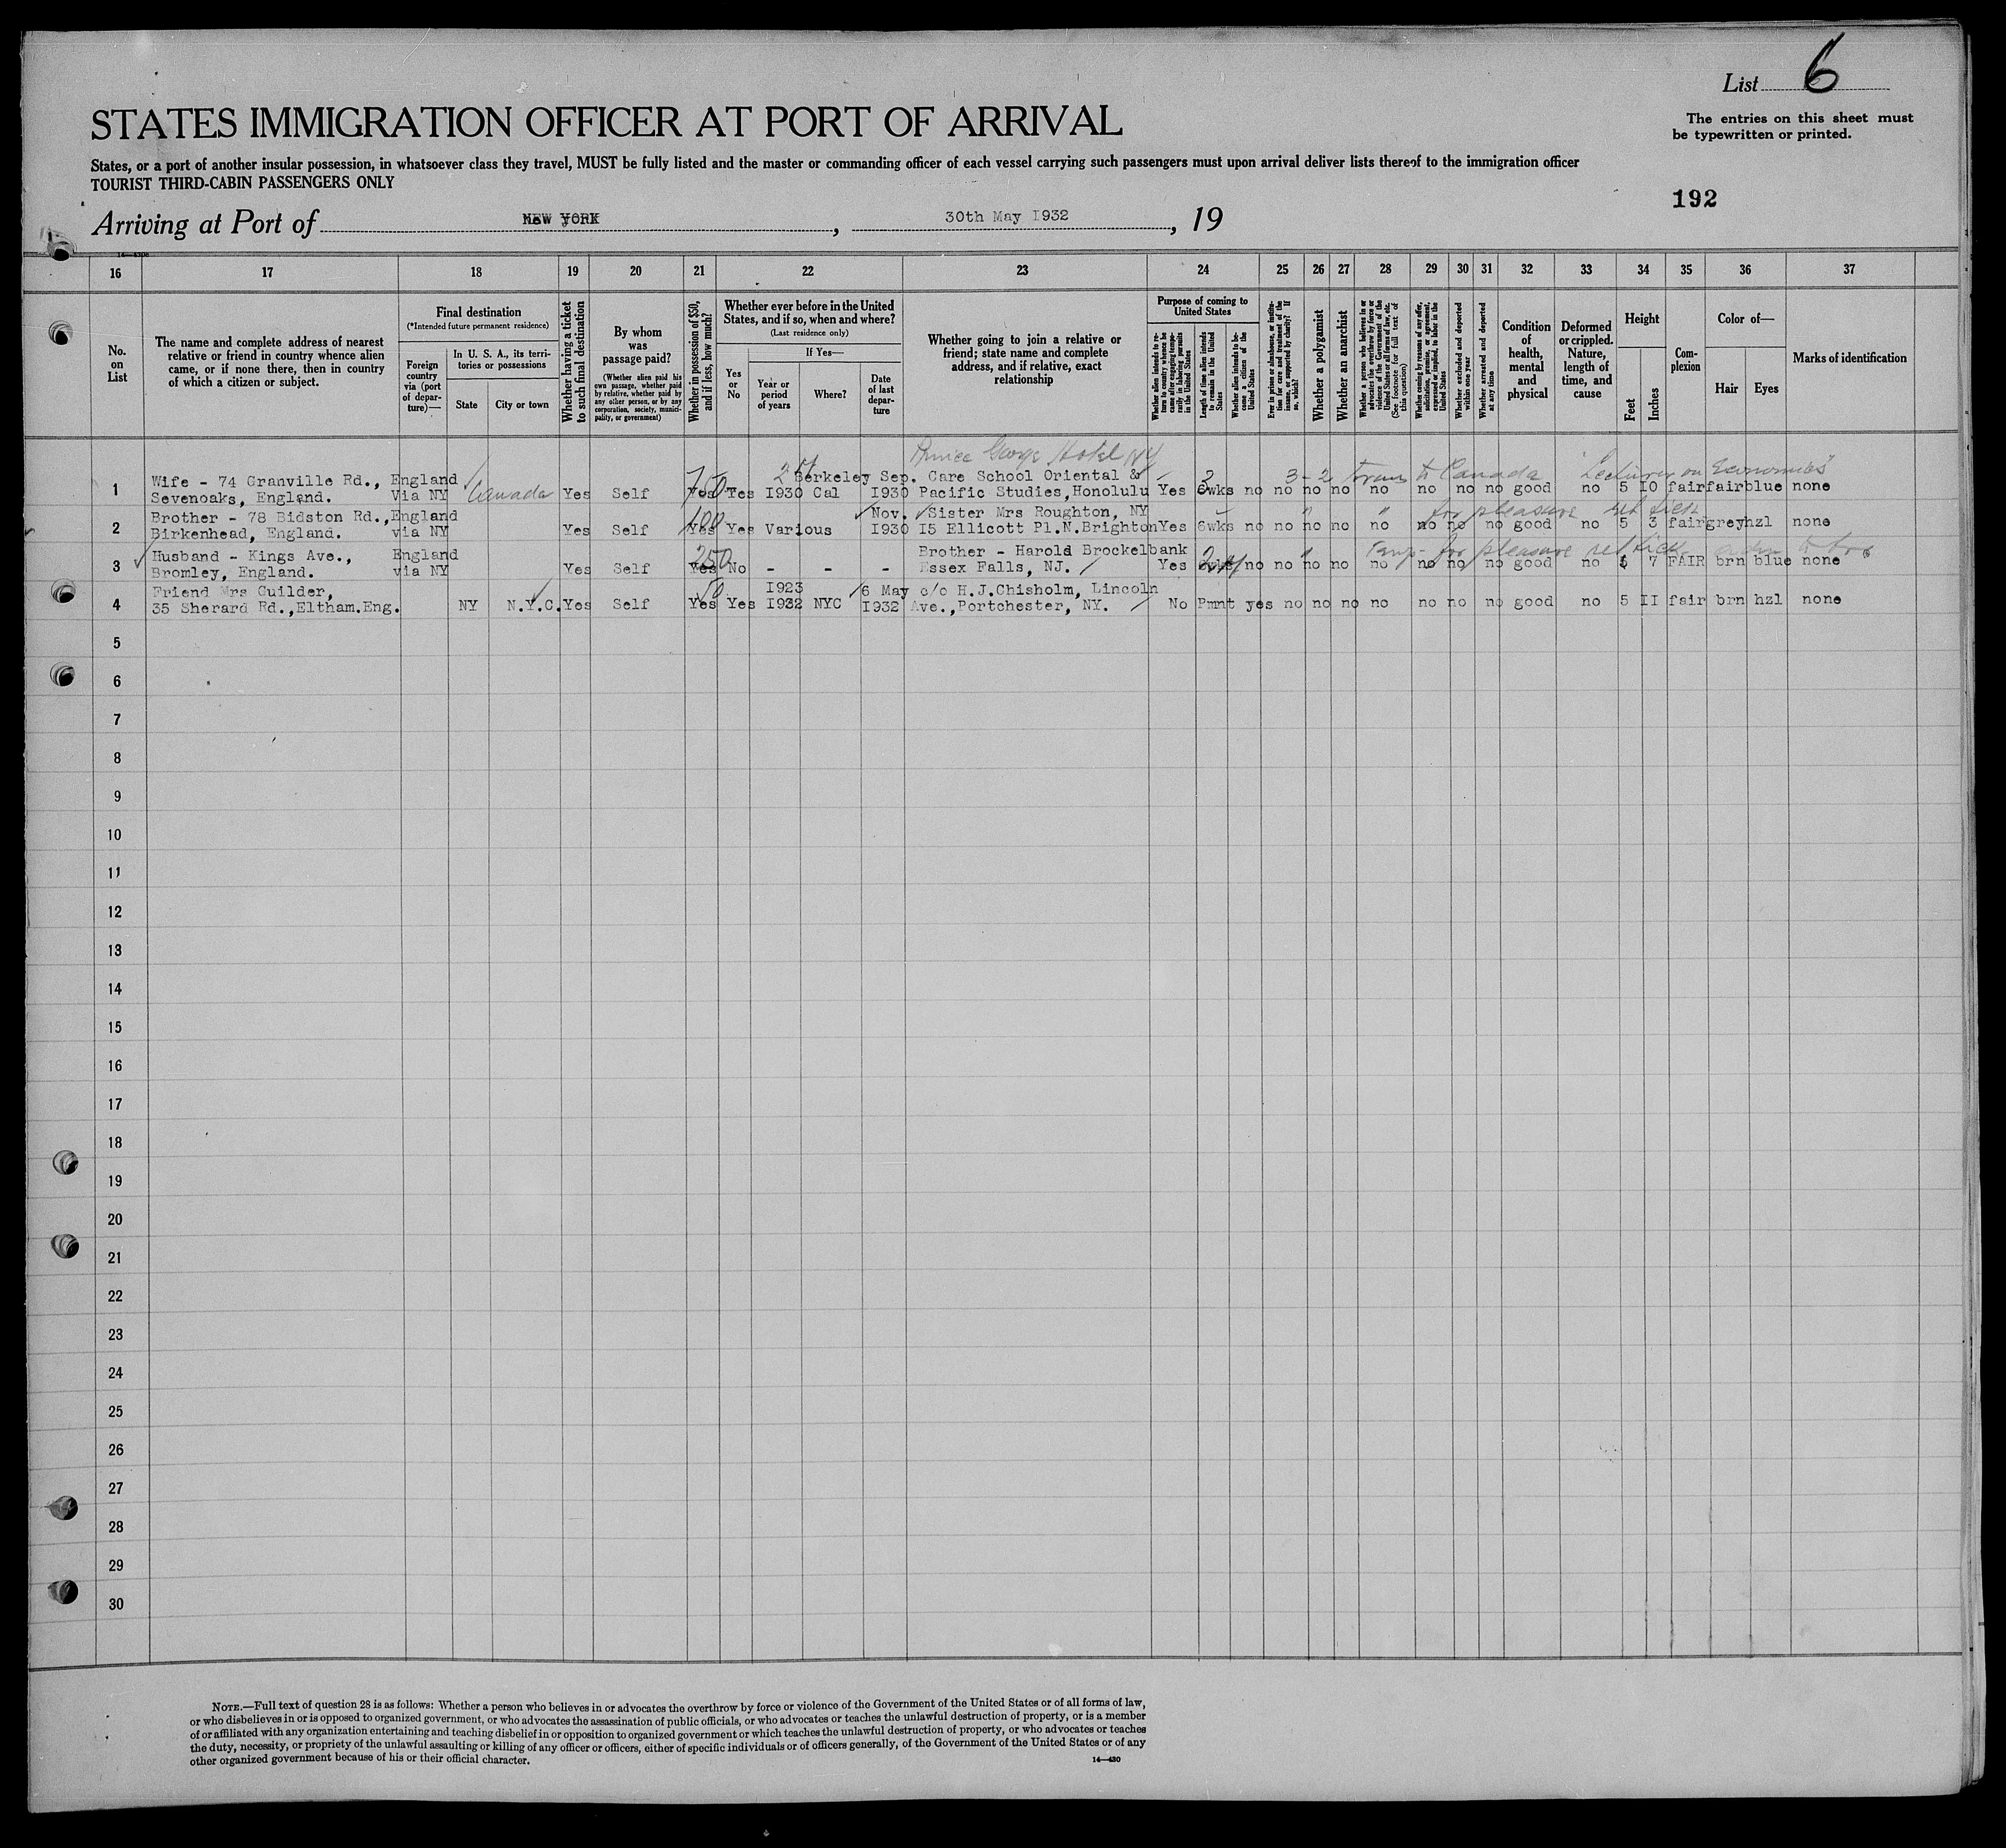 List 6
STATES IMMIGRATION OFFICER AT PORT OF ARRIVAL
The entries on this sheet must
be typewritten or printed.
States, or a port of another insular possession, in whatsoever class they travel, MUST be fully listed and the master or commanding officer of each vessel carrying such passengers must upon arrival deliver lists thereof to the immigration officer
TOURIST THIRD-CABIN PASSENGERS ONLY
192
Arriving at Port of NEW YORK, 30th May I932, 19
16 17 18 19 20 21 22 23 24 25 26 27 28 29 30 31 32 33 34 35 36 37
No. on List
The name and complete address of nearest relative or friend in country whence alien came, or if none there, then in country of which a citizen or subject.
Final destination
(*Intended future permanent residence)
Foreign country via (port of departure)—
In U. S. A., its territories or possessions
State
City or town
Whether having a ticket to such final destination
By whom was passage paid?
(Whether alien paid his own passage, whether paid by relative, whether paid by any other person, or by any corporation, society, municipality, or government)
Whether in possession of $50, and if less, how much?
Whether ever before in the United States, and if so, when and where?
(Last residence only)
Yes or No
If Yes—
Year or period of years
Where?
Date of last departure
Whether going to join a relative or friend; state name and complete address, and if relative, exact relationship
Purpose of coming to United States
Whether alien intends to return to country whence he came after engaging temporarily in laboring pursuits in the United States
Length of time alien intends to remain in the United States
Whether alien intends to become a citizen of the United States
Ever in prison or almshouse, or institution for care and treatment of the insane, or supported by charity? If so, which?
Whether a polygamist
Whether an anarchist
Whether a person who believes in or advocates the overthrow by force or violence of the Government of the United States or all forms of law, etc. (See footnote for full text of this question)
Whether coming by reasons of any offer, solicitation, promise, or agreement, expressed or implied, to labor in the United States
Whether excluded and deported within one year
Whether arrested and deported at any time
Condition of health, mental and physical
Deformed or crippled. Nature, length of time, and cause
Height
Feet
Inches
Complexion
Color of—
Hair
Eyes
Marks of identification
Prince George Hotel NY
1 Wife - 74 Granville Rd., England Berkeley Sep. Care School Oriental & 3-2 trans to Canada "Lecturer on Economics"
Sevenoaks, England. Via NY Canada Yes Self 750 Yes Yes I930 Cal I930 Pacific Studies,Honolulu Yes 6wks no no no no no no no no good no 5 I0 fair fair blue none
2 Brother - 78 Bidston Rd.,England Nov. Sister Mrs Roughton, NY for pleasure ret tick
Birkenhead, England. via NY Yes Self 100 Yes Yes Various I930 I5 Ellicott Pl.N.Brighton Yes 6wks no no no no no no no no good no 5 3 fair grey hzl none
3 Husband - Kings Ave., England 250 Brother - Harold Brockelbank for pleasure ret tick
Bromley, England. via NY Yes Self Yes No - - - Essex Falls, NJ. Yes no no no no no no no no good no 5 7 FAIR brn blue none
4 Friend Mrs Guilder, 50 I923 6 May c/o H.J.Chisholm, Lincoln
35 Sherard Rd.,Eltham.Eng. NY N.Y.C. Yes Self Yes Yes I932 NYC I932 Ave.,Portchester, NY. No Pmnt yes no no no no no no no good no 5 II fair brn hzl none
5
6
7
8
9
10
11
12
13
14
15
16
17
18
19
20
21
22
23
24
25
26
27
28
29
30
NOTE.—Full text of question 28 is as follows: Whether a person who believes in or advocates the overthrow by force or violence of the Government of the United States or of all forms of law,
or who disbelieves in or is opposed to organized government, or who advocates the assassination of public officials, or who advocates or teaches the unlawful destruction of property, or is a member
of or affiliated with any organization entertaining and teaching disbelief in or opposition to organized government or which teaches the unlawful destruction of property, or who advocates or teaches
the duty, necessity, or propriety of the unlawful assaulting or killing of any officer or officers, either of specific individuals or of officers generally, of the Government of the United States or of any
other organized government because of his or their official character.
14—430